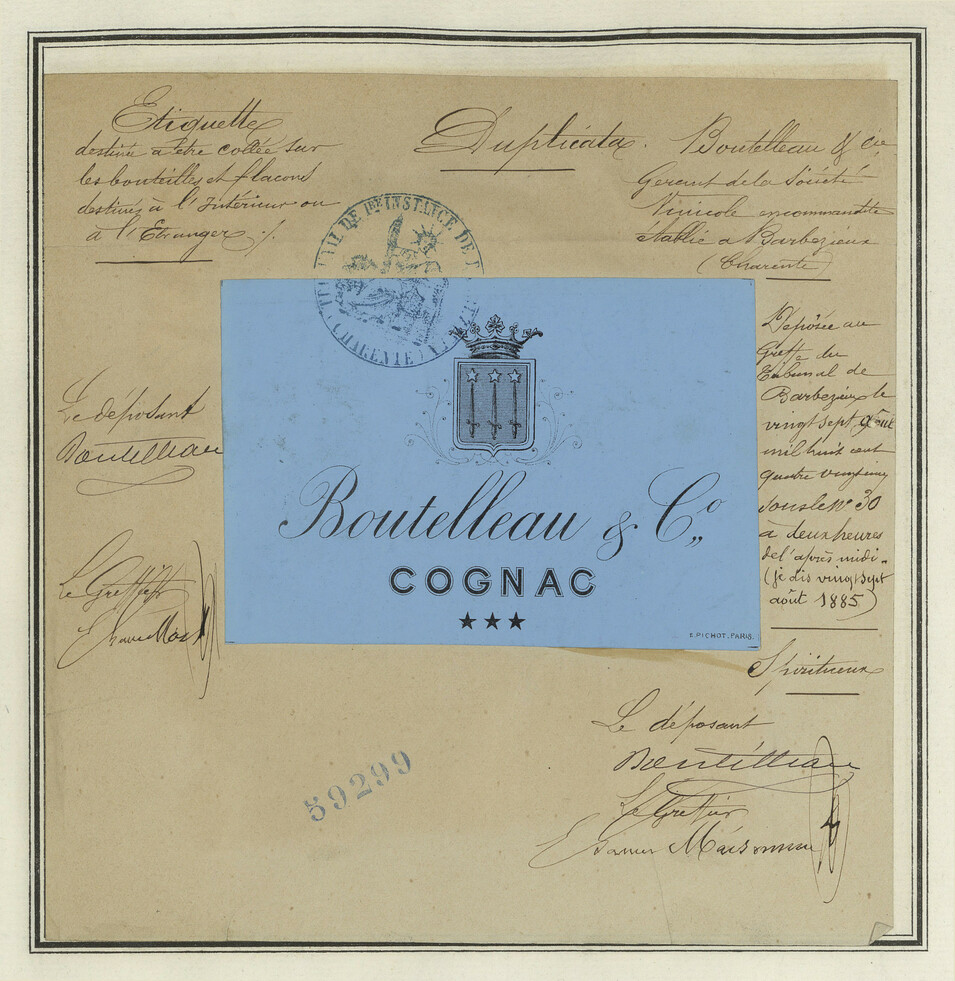 Etiquette
destiné a être collée sur
les bouteilles et flacons
destinés à l'Intérieur ou
à l'Etranger ./.
Duplicata.
Boutelleau & Cie
Gerant de la Société
Vinicole en commandite
établie a Barbezieux
(Charente)
TRIBUNAL DE 1ère INSTANCE DE
(CHARENTE)
Déposée au
Greffe du
Tribunal de
Barbezieux le
vingt sept août
mil huit cent
quatre vingt cinq
sous le n° 30
à deux heures
de l'après midi.
(je dis vingt sept
août 1885)
Spiritueux
Le déposant
Boutelleau
Le Greffier
Boutelleau & Co
COGNAC
★★★
E. PICHOT, PARIS.
59299
Le déposant
Boutelleau
Le Greffier